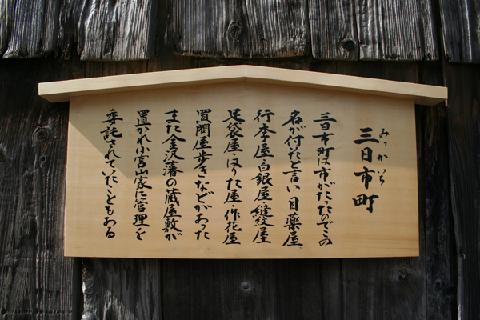 みっかいち
三日市町
三日市町は市がたたのでこの
名が付たと言い目薬屋
行李屋白銀屋縫綾屋
足袋屋ほりた屋作花屋
置関屋歩きなどがあった
また金沢藩の蔵屋敷が
置かれ宮山家に管理を
委託されていたともある